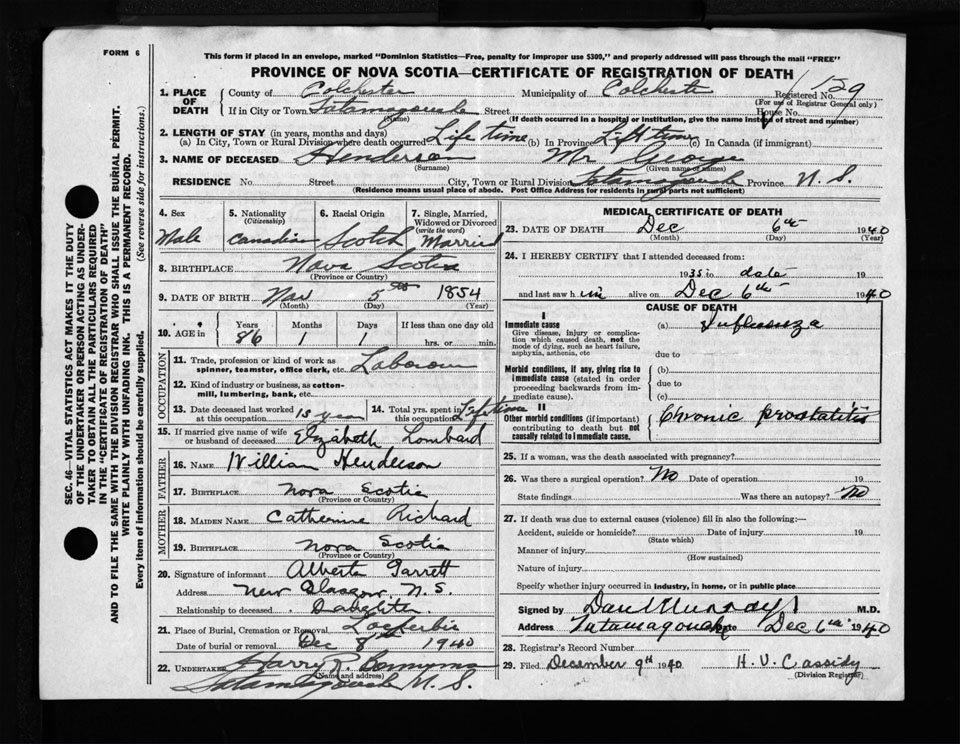 FORM 6
This form if placed in an envelope, marked "Dominion Statistics—Free, penalty for improper use $300," and properly addressed will pass through the mail "FREE"
PROVINCE OF NOVA SCOTIA—CERTIFICATE OF REGISTRATION OF DEATH
SEC. 46—VITAL STATISTICS ACT MAKES IT THE DUTY
OF THE UNDERTAKER OR PERSON ACTING AS UNDER-
TAKER TO OBTAIN ALL THE PARTICULARS REQUIRED
IN THE "CERTIFICATE OF REGISTRATION OF DEATH"
AND TO FILE THE SAME WITH THE DIVISION REGISTRAR WHO SHALL ISSUE THE BURIAL PERMIT.
WRITE PLAINLY WITH UNFADING INK. THIS IS A PERMANENT RECORD.
Every item of information should be carefully supplied. (See reverse side for instructions.)
1. PLACE OF DEATH
County of Colchester Municipality of Colchester Registered No. 129
(For use of Registrar General only)
If in City or Town Tatamagouche Street House No.
(Name) (If death occurred in a hospital or institution, give the name instead of street and number)
2. LENGTH OF STAY (in years, months and days)
(a) In City, Town or Rural Division where death occurred Life time (b) In Province Life time (c) In Canada (if immigrant)
3. NAME OF DECEASED Henderson Mr George
(Surname) (Given name or names)
RESIDENCE No. Street City, Town or Rural Division Tatamagouche Province N. S.
(Residence means usual place of abode. Post Office Address for residents in rural parts not sufficient)
4. Sex Male
5. Nationality (Citizenship) Canadian
6. Racial Origin Scotch
7. Single, Married, Widowed or Divorced (write the word) Married
8. BIRTHPLACE Nova Scotia
(Province or Country)
9. DATE OF BIRTH Nov 5th 1854
(Month) (Day) (Year)
10. AGE in Years 86 Months 1 Days 1 If less than one day old
hrs. or min.
OCCUPATION
11. Trade, profession or kind of work as spinner, teamster, office clerk, etc. Labourer
12. Kind of industry or business, as cotton-mill, lumbering, bank, etc.
13. Date deceased last worked at this occupation 15 year
14. Total yrs. spent in this occupation Life time
15. If married give name of wife or husband of deceased Elizabeth Lombard
FATHER
16. NAME William Henderson
17. BIRTHPLACE Nova Scotia
(Province or Country)
MOTHER
18. MAIDEN NAME Catherine Richard
19. BIRTHPLACE Nova Scotia
(Province or Country)
20. Signature of informant Alberta Jarrett
Address New Glasgow, N. S.
Relationship to deceased Daughter
21. Place of Burial, Cremation or Removal
Date of burial or removal Dec 8th 1940
22. UNDERTAKER Harry R.
(Name and address)
Tatamagouche N. S.
MEDICAL CERTIFICATE OF DEATH
23. DATE OF DEATH Dec 6th 1940
(Month) (Day) (Year)
24. I HEREBY CERTIFY that I attended deceased from:
1935 to date 19
and last saw him alive on Dec 6th 1940
CAUSE OF DEATH
I
Immediate cause
Give disease, injury or complication which caused death, not the mode of dying, such as heart failure, asphyxia, asthenia, etc
(a) Influenza
due to
Morbid conditions, if any, giving rise to immediate cause (stated in order proceeding backwards from immediate cause).
(b)
due to
(c)
II
Other morbid conditions (if important) contributing to death but not causally related to immediate cause.
Chronic prostatitis
25. If a woman, was the death associated with pregnancy?
26. Was there a surgical operation? No Date of operation 19
State findings Was there an autopsy? No
27. If death was due to external causes (violence) fill in also the following:—
Accident, suicide or homicide? Date of injury 19
(State which)
Manner of injury
(How sustained)
Nature of injury
Specify whether injury occurred in industry, in home, or in public place
Signed by Dan Murray M.D.
Address Tatamagouche Date Dec 6th 1940
28. Registrar's Record Number
29. Filed December 9th 1940 H. V. Cassidy
(Division Registrar)